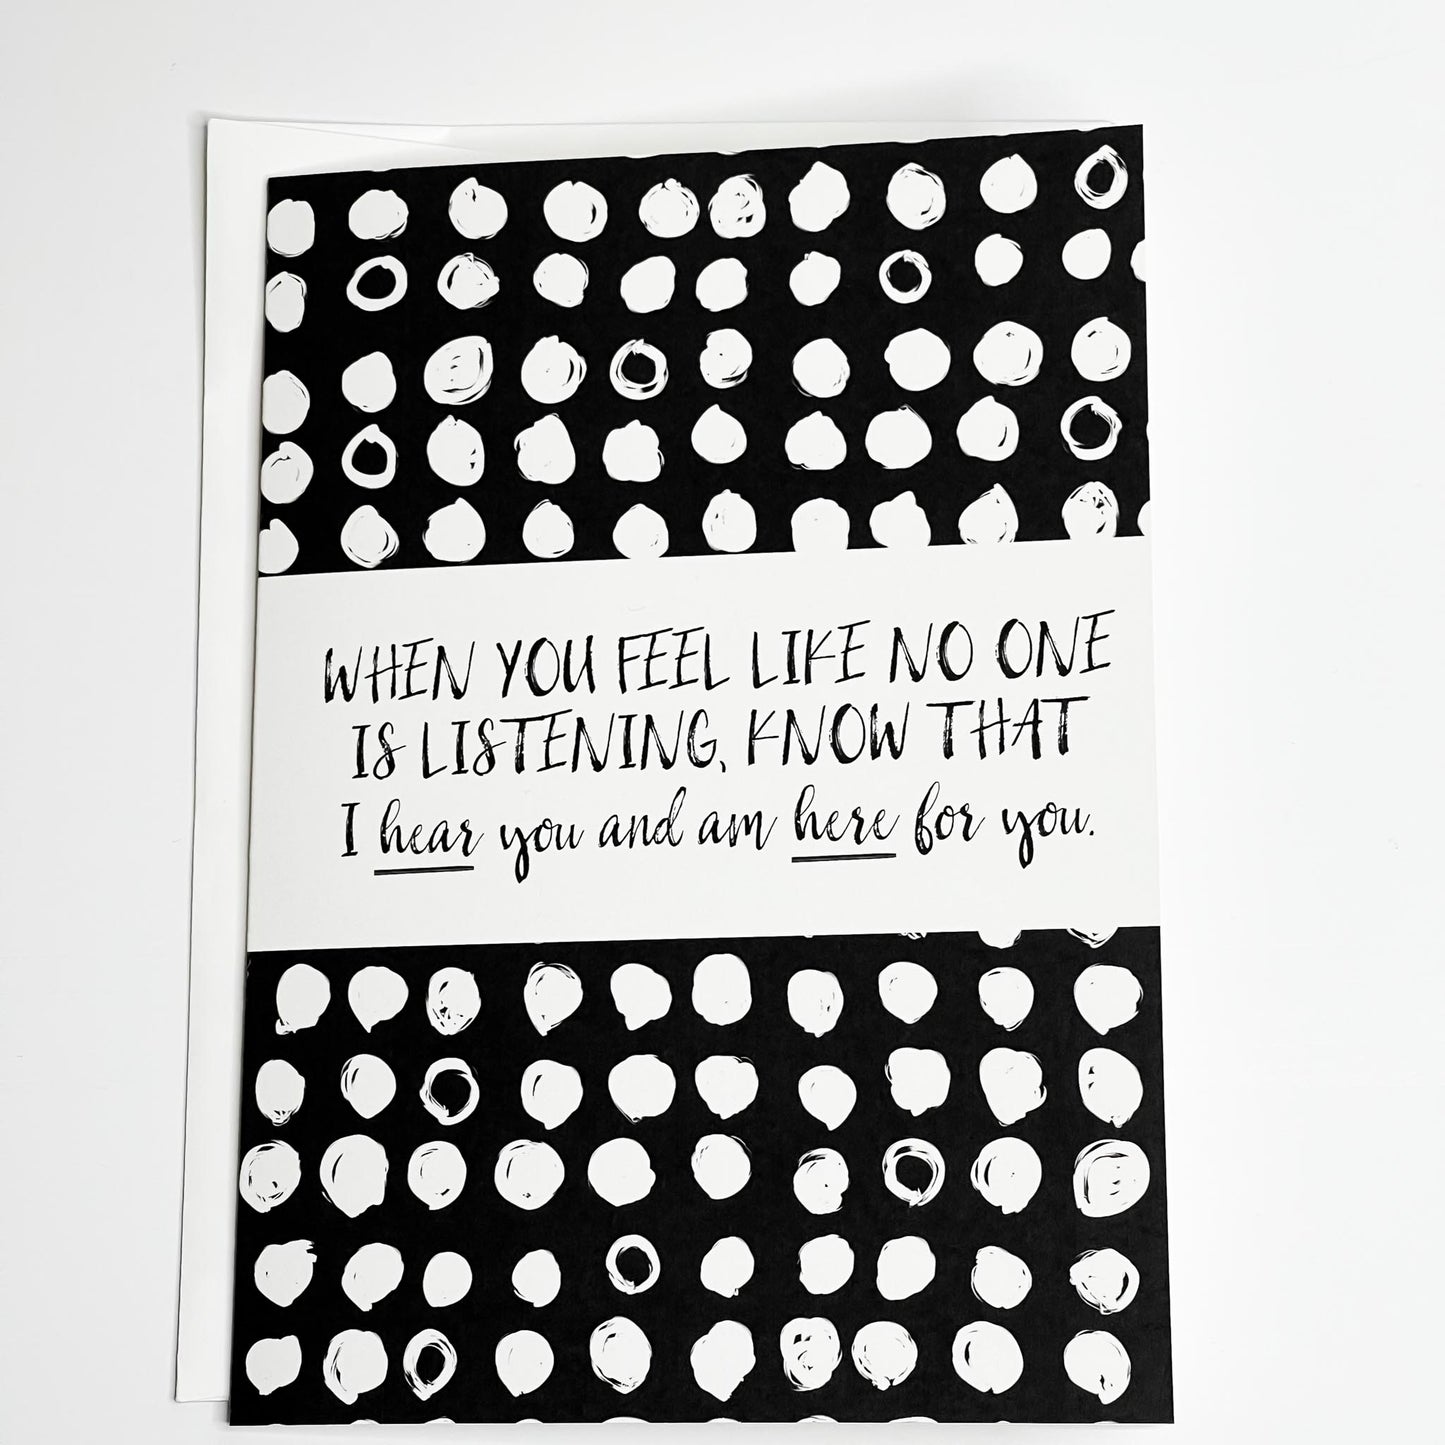 WHEN YOU FEEL LIKE NO ONE
IS LISTENING, KNOW THAT
I hear you and am here for you.